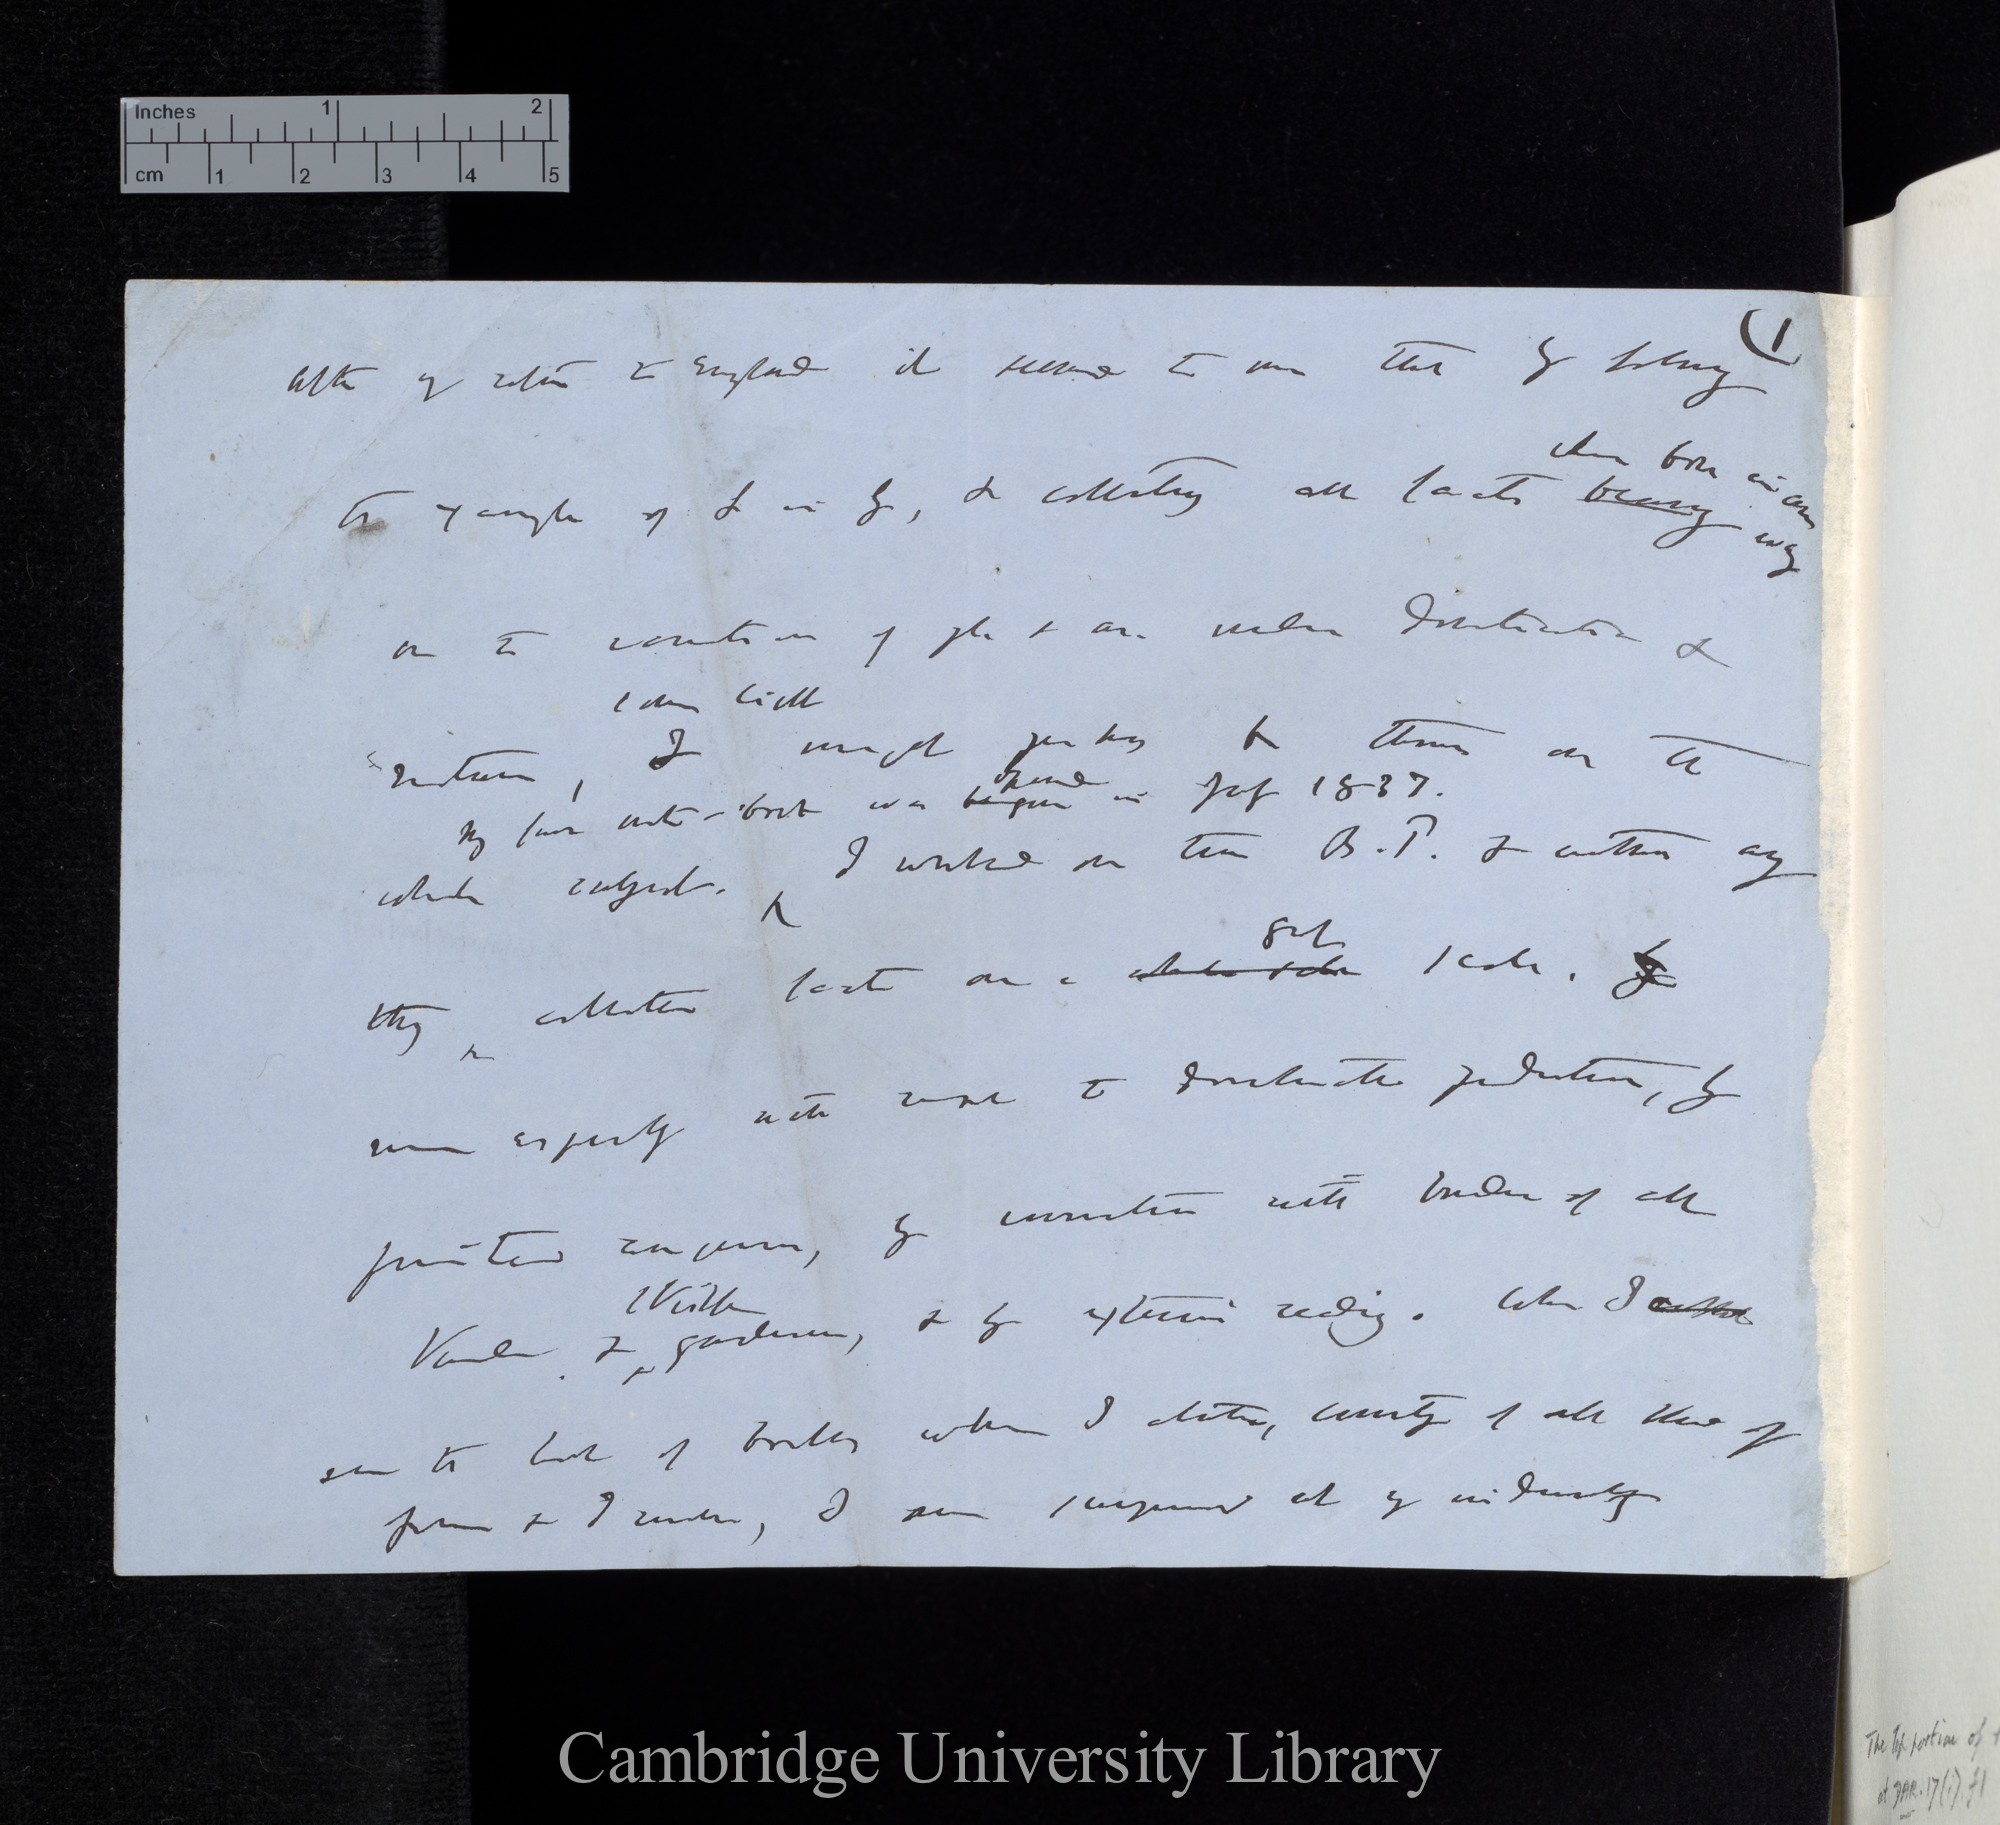 Inches 1 2
cm 1 2 3 4 5
(1
After my return to England it seemed to me that by following
which bore in any way
the example of L in G, & collecting all facts bearing
on the variation of pl. & an. under Domestication &
some light
nature, I might perhaps be thrown on the
My first note-book was begun opened in July 1837.
whole subject. I worked on true B.P. & without any
theory & collected facts on a whole sale great scale. by
more especially with respect to domesticated productions, by
printed enquiries, by conversation with breeders of all
skilful
kinds & gardeners, & by extensive reading. When I
see the list of books which I abstracted, consisting of all kind of
from & I read, I am surprised at my industry
The top portion of
at DAR.17(i).f1
Cambridge University Library